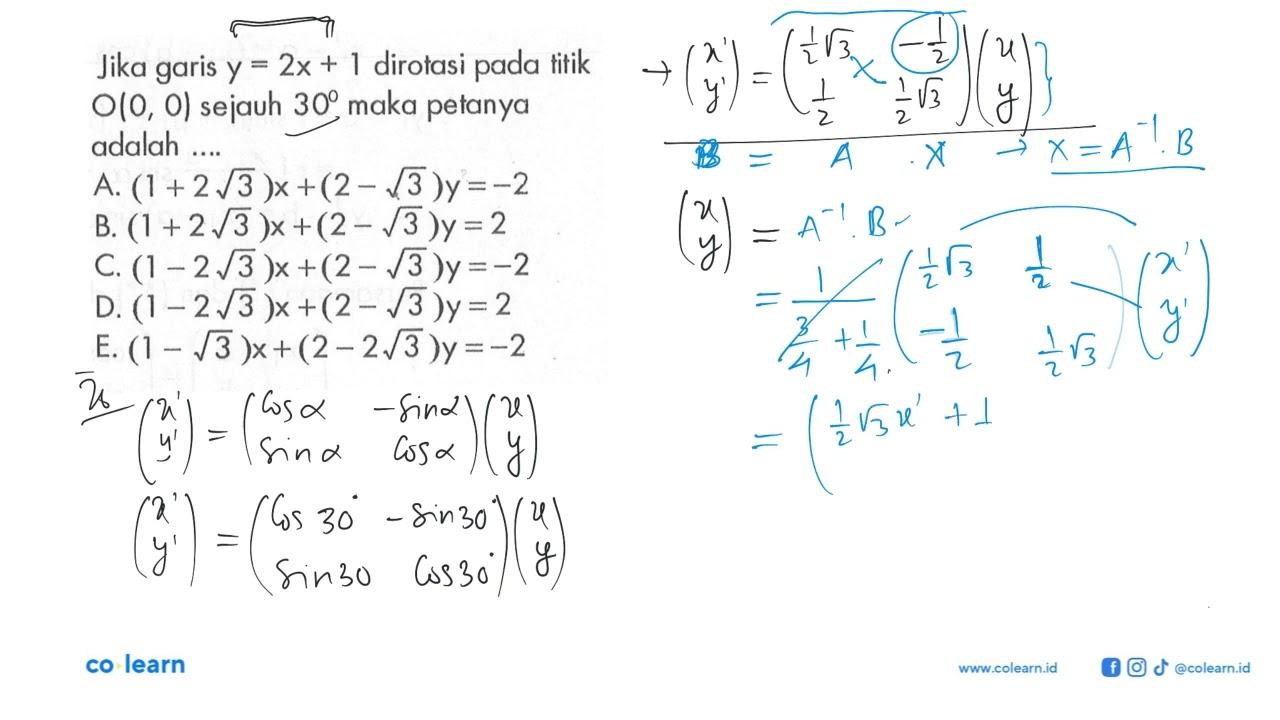 Jika garis y = 2x + 1 dirotasi pada titik
O(0, 0) sejauh 30⁰ maka petanya
adalah ....
A. (1 + 2√3)x + (2 − √3)y = −2
B. (1 + 2√3)x + (2 − √3)y = 2
C. (1 − 2√3)x + (2 − √3)y = −2
D. (1 − 2√3)x + (2 − √3)y = 2
E. (1 − √3)x + (2 − 2√3)y = −2
(x' y') = (cos α −sin α sin α cos α)(x y)
(x' y') = (cos 30° −sin 30° sin 30 cos 30°)(x y)
→ (x' y') = (1/2√3 −1/2 1/2 1/2√3)(x y)}
B = A . X → X = A⁻¹. B
(x y) = A⁻¹. B
= 1/(3/4 + 1/4) (1/2√3 1/2 −1/2 1/2√3)(x' y')
= (1/2√3 x' + 1
co·learn
www.colearn.id @colearn.id